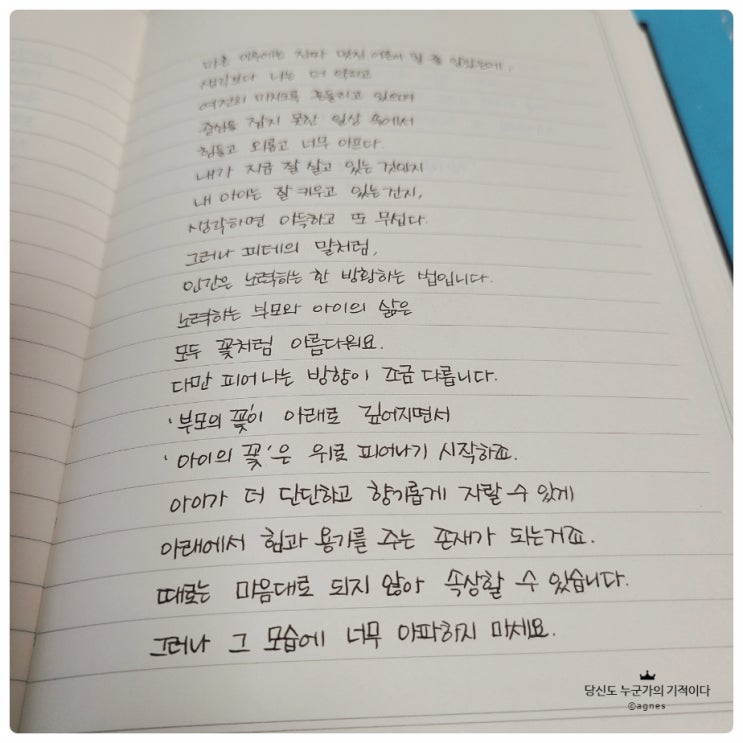 마흔 때에는 진짜 멋진 어른이 될 줄 알았는데,
생각보다 나는 더 약하고
여전히 미치도록 흔들리고 있으며
중심을 잡지 못한 일상 속에서
힘들고 외롭고 너무 아프다.
내가 지금 잘 살고 있는 것인지
내 아이는 잘 키우고 있는건지,
생각하면 아득하고 또 무섭다.
그러나 괴테의 말처럼,
인간은 노력하는 한 방황하는 법입니다.
노력하는 부모와 아이의 삶은
모두 꽃처럼 아름다워요.
다만 피어나는 방향이 조금 다릅니다.
'부모의 꽃'이 아래로 깊어지면서
'아이의 꽃'은 위로 피어나기 시작하죠.
아이가 더 단단하고 향기롭게 자랄 수 있게
아래에서 힘과 용기를 주는 존재가 되는거죠.
때로는 마음대로 되지 않아 속상할 수 있습니다.
그러나 그 모습에 너무 아파하지 마세요.
당신도 누군가의 기적이다
©agnes